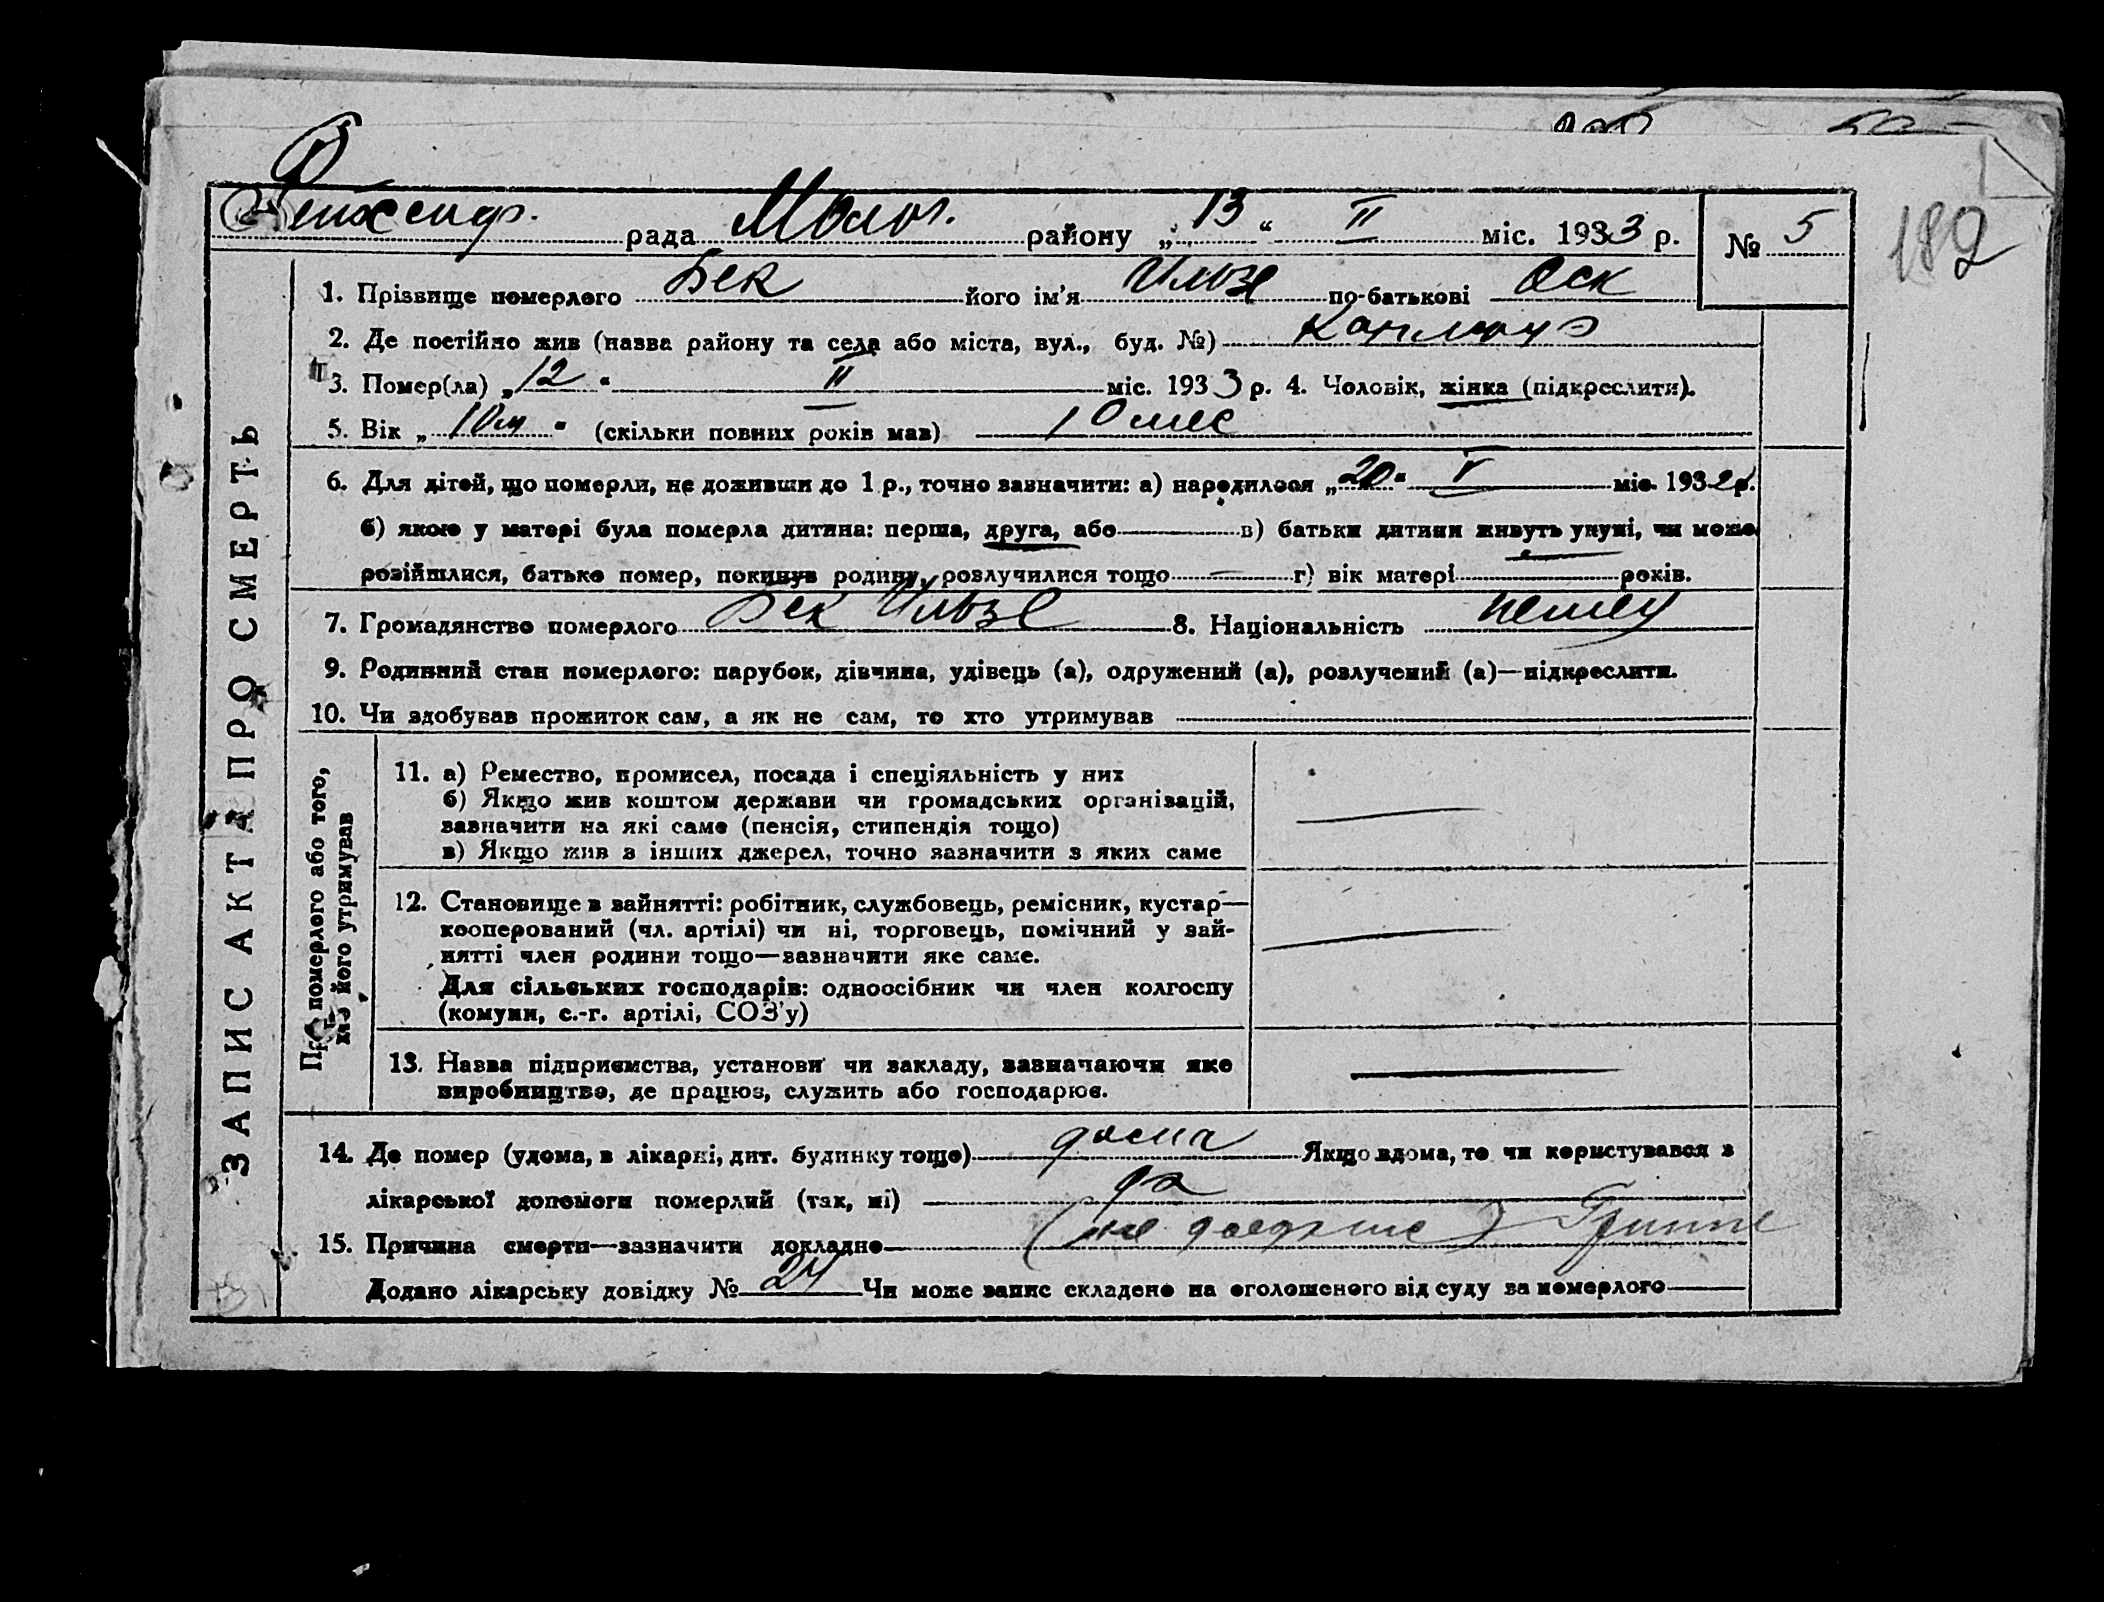 рада Молоч. району „13“ II міс. 1933 р. № 5
182
1. Прізвище померлого Бек його ім'я Ильзе по-батькові Оск
2. Де постійно жив (назва району та села або міста, вул., буд. №)
3. Помер(ла) „12“ II міс. 1933 р. 4. Чоловік, жінка (підкреслити).
5. Вік „10м“ (скільки повних років мав) 10 мес
6. Для дітей, що померли, не доживши до 1 р., точно зазначити: а) народилося „20“ V міс. 1932 р.
б) якою у матері була померла дитина: перша, друга, або в) батьки дитини живуть укупі, чи може
розійшлися, батько помер, покинув родину, розлучилися тощо — г) вік матері років.
7. Громадянство померлого Бек Ильзе 8. Національність немец
9. Родинний стан померлого: парубок, дівчина, удівець (а), одружений (а), розлучений (а)—підкреслити.
10. Чи здобував прожиток сам, а як не сам, то хто утримував
ЗАПИС АКТА ПРО СМЕРТЬ
Про померлого або того,
хто його утримував
11. а) Ремество, промисел, посада і спеціяльність у них
б) Якщо жив коштом держави чи громадських організацій,
зазначити на які саме (пенсія, стипендія тощо)
в) Якщо жив з інших джерел, точно зазначити з яких саме
12. Становище в зайнятті: робітник, службовець, ремісник, кустар—
кооперований (чл. артілі) чи ні, торговець, помічний у зай-
нятті член родини тощо—зазначити яке саме.
Для сільських господарів: одноосібник чи член колгоспу
(комуни, с.-г. артілі, СОЗ'у)
13. Назва підприємства, установи чи закладу, зазначаючи яке
виробництво, де працює, служить або господарює.
14. Де помер (удома, в лікарні, дит. будинку тощо) дома Якщо вдома, то чи користувався з
лікарської допомоги померлий (так, ні) да
15. Причина смерти—зазначити докладно Гриппе
Додано лікарську довідку № 24 Чи може запис складено на оголошеного від суду за померлого